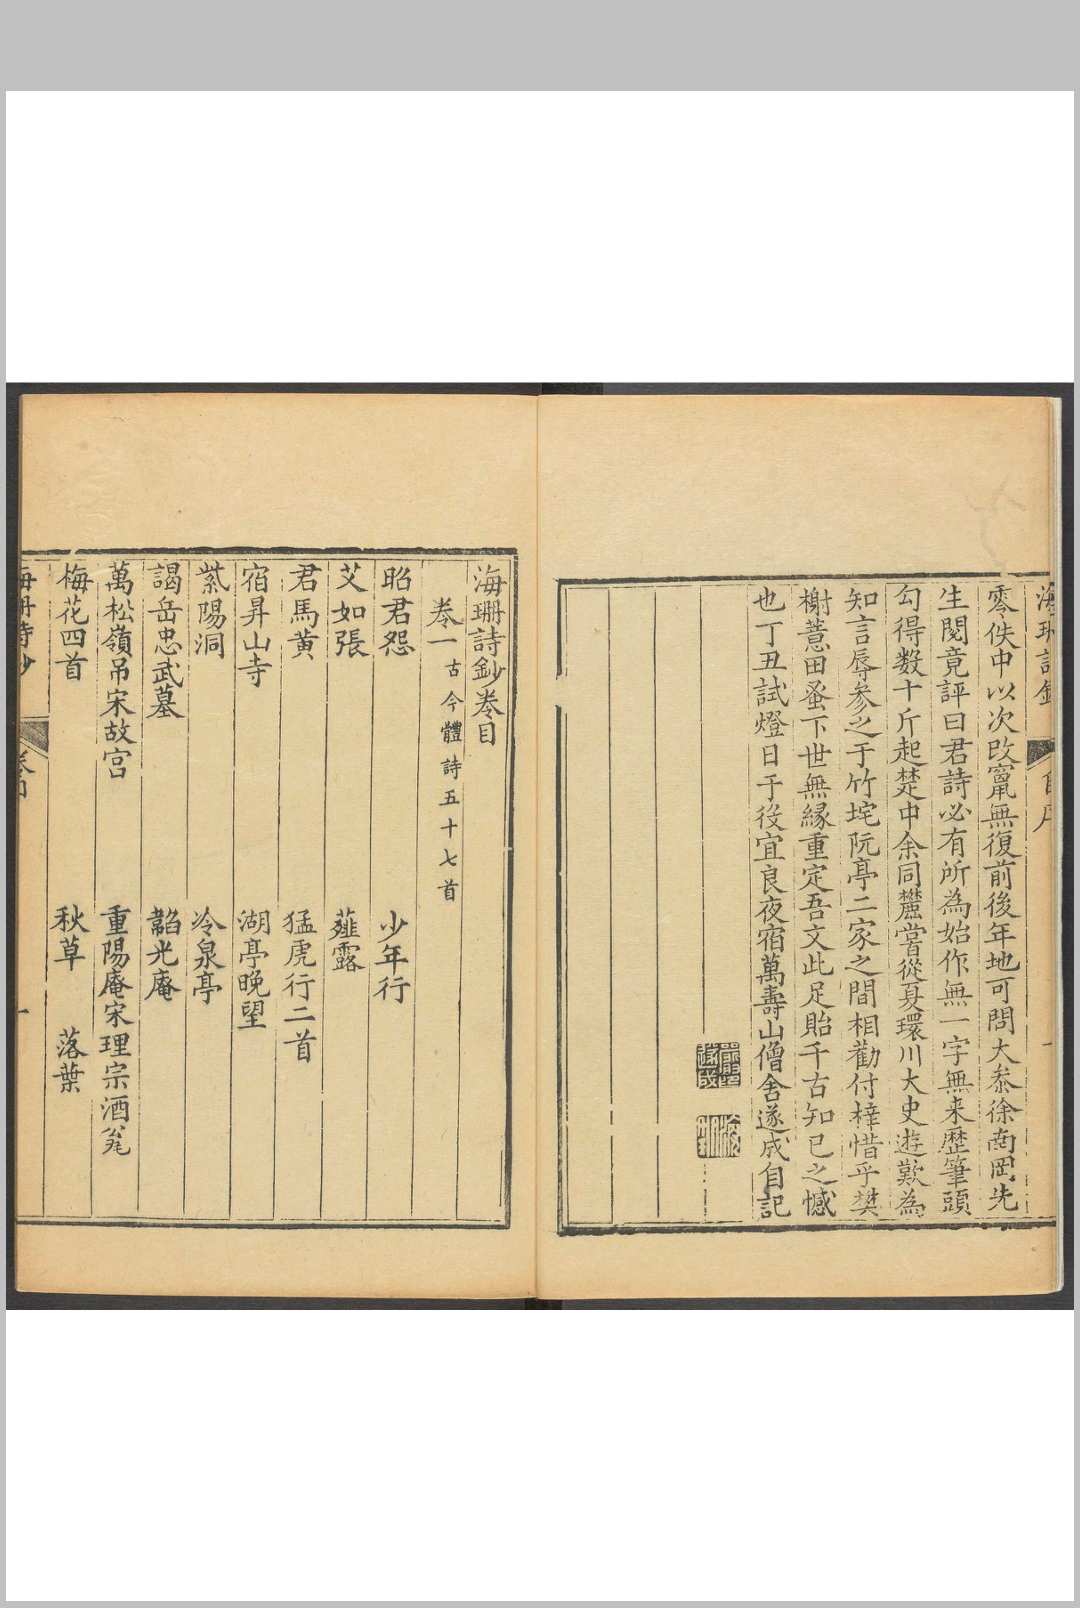 零佚中以次改竄無復前後年地可問大叅徐南岡先
生閱竟評曰君詩必有所為始作無一字無来歷筆頭
勾得数十斤起楚中余同麓嘗從夏環川大史遊歎為
知言辱参之于竹垞阮亭二家之間相勸付梓惜乎樊
榭薏田蚤下世無緣重定吾文此足貽千古知已之憾
也丁丑試燈日于役宜良夜宿萬壽山僧舍遂成自記
嚴遂成
海珊
海珊詩鈔卷目
卷一 古今體詩五十七首
昭君怨 少年行
艾如張 薤露
君馬黄 猛虎行二首
宿昇山寺 湖亭晚望
紫陽洞 冷泉亭
謁岳忠武墓 韜光庵
萬松嶺吊宋故宮 重陽庵宋理宗酒瓮
梅花四首 秋草 落葉